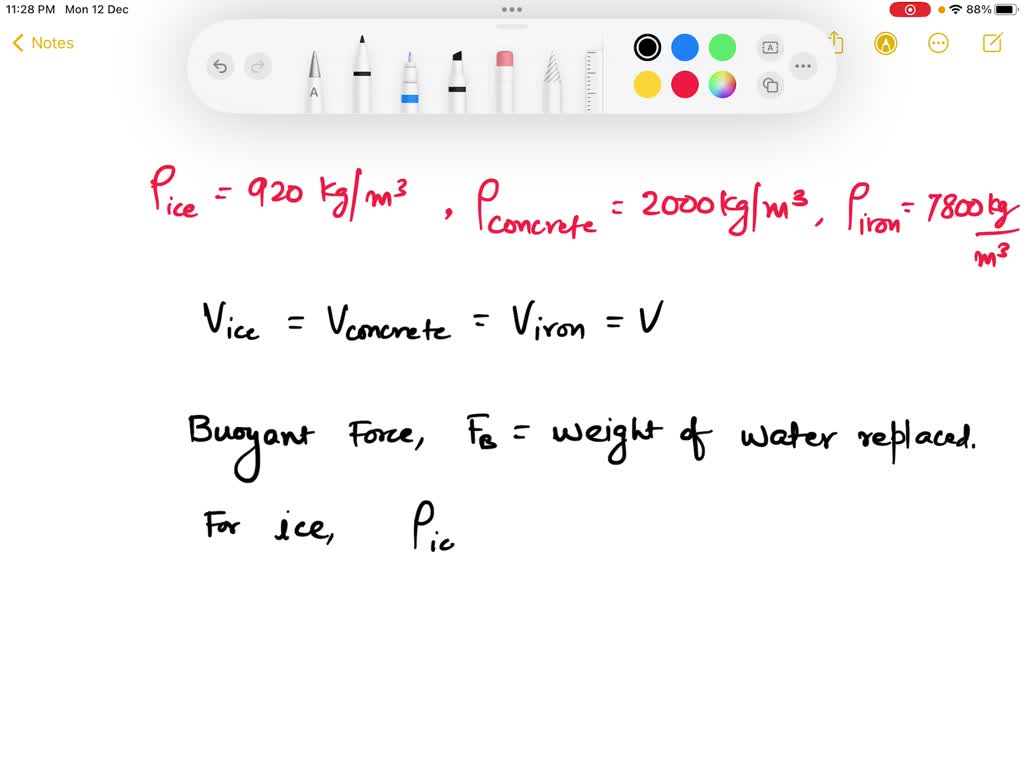 11:28 PM Mon 12 Dec 88%
Notes
A A
ρice = 920 kg/m³, ρconcrete = 2000 kg/m³, ρiron = 7800 kg/m³
Vice = Vconcrete = Viron = V
Buoyant Force, FB = weight of water replaced.
For ice, ρic